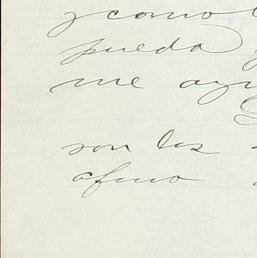 y como
pueda
me
son los
afmo